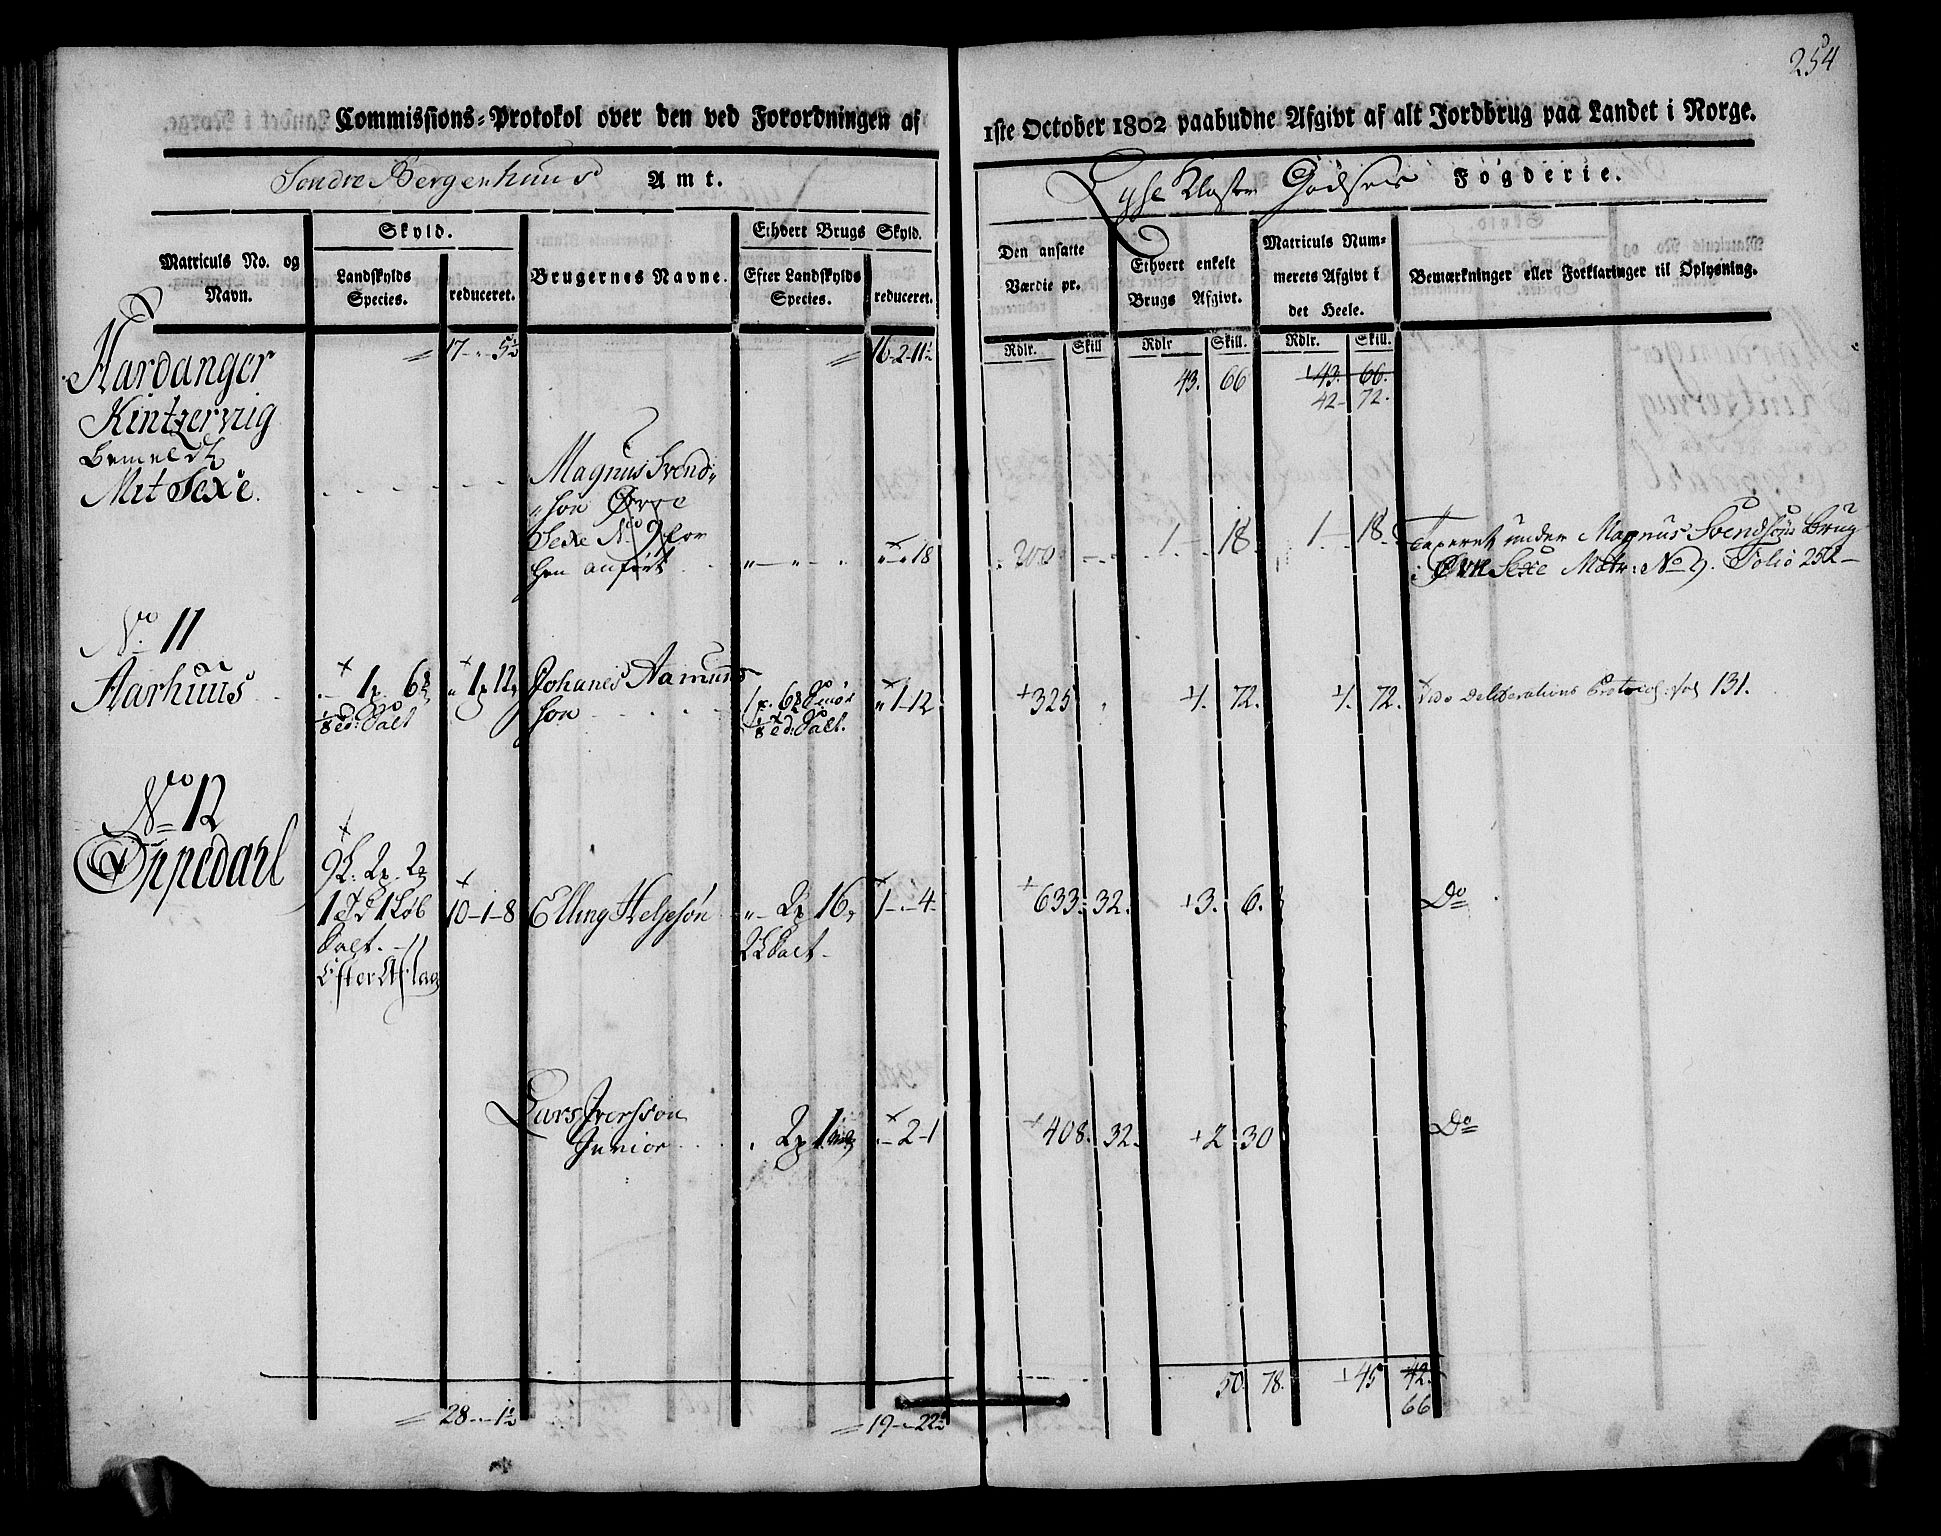 254
Commissions-Protokol over den ved Forordningen af 1ste October 1802 paabudne Afgivt af alt Jordbrug paa Landet i Norge.
Søndre Bergenhuus Amt. Lyse Kloster Godses Føgderie.
Skyld. Ethvert Brugs Skyld.
Matriculs No. og Navn. Landskylds Species. reduceret. Brugernes Navne. Efter Landskylds Species. reduceret. Den ansatte Værdie pr. Ethvert enkelt Brugs Afgivt. Matriculs Nummerets Afgivt i det Heele. Bemærkninger eller Forklaringer til Oplysning.
Rdlr. Skill Rdlr Skill. Rdlr. Skill.
Hardanger 17 - 5½ 16-2-11½ 43. 66 43. 66.
Kintzervig 42- 72.
bemeldte
Mit Sexe. Magnus Svend-
søn Øvre
Sexe No 9 for
hen anført - 18 200 1 - 18. 1 - 18. Taxeret under Magnus Svendsøns Brug
i Øvre Sexe Matr: No 9. Folio 252-
No 11
Aarhuus 1 p 6 1 p 12 Johanes Aamund
søn 1 p. 6 Smør 1-12 325 1. 72. 1. 72. Vide Deliberations Protocol fol 131.
1/8 Salt 1/8 Salt.
No 12
Oppedahl
1 Løb 10-1-8 Elling Helgesøn 2 p 16 1-4 633. 32. 3. 6. Do
Salt. Salt
Efter Aflag
Lars Iversson
Junior 2 p 1 - 2-1 408. 32. 2 30 Do
50. 78. 45 42.
28 - 1½ 19 - 22½ 66